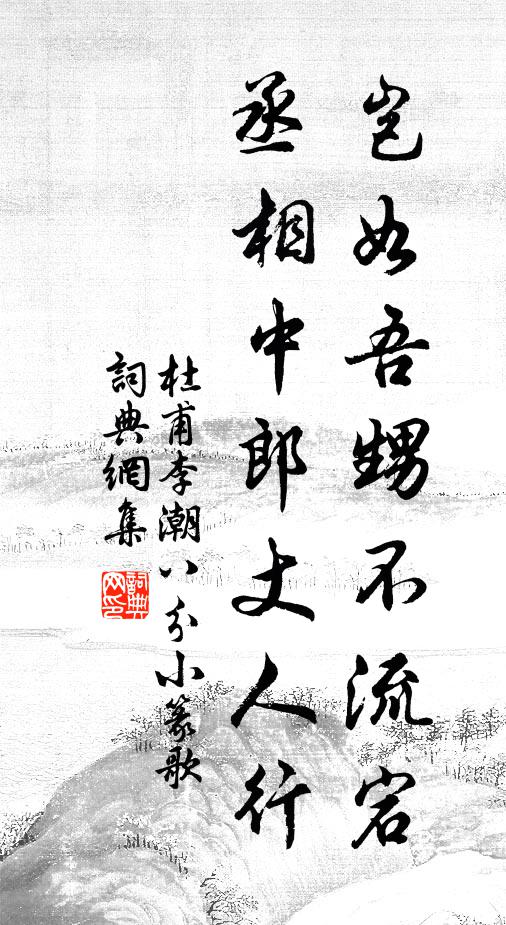 豈如吾甥不流宕
丞相中郎丈人行
杜甫李潮八分小篆歌
詞典網集
詞典网印